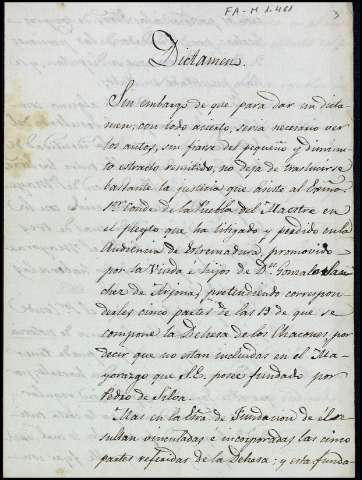 FA-M 1.461
3
Dictamen.
Sin embargo de que para dar un dicta-
men, con todo acierto, seria necesario ver
los autos, sin fiarse del pequeño y diminu-
to estracto remitido, no deja de traslucirse
bastante la justicia que asiste al Exmo.
Sor. Conde de la Puebla del Maestre en
el pleyto que ha litigado y perdido en la
Audiencia de Estremadura, promovido
por la Viuda e hijos de Dn. Gonzalo San-
chez de Arjona, pretendiendo correspon-
derles cinco partes de las 19 de que se
compone la Dehesa de los Chacones, por
decir que no estan incluidas en el Ma-
yorazgo que S.E. posee fundado por
Pedro de Silva.
Mas en la Esra. de Fundacion de él re-
sultan vinculadas e incorporadas las cinco
partes referidas de la Dehesa: y esta funda-